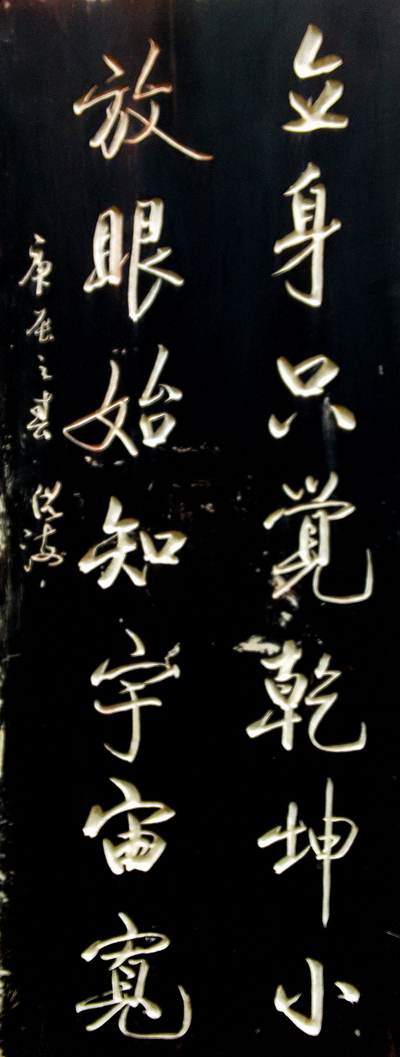 立身只覺乾坤小
放眼始知宇宙寬
庚辰之春